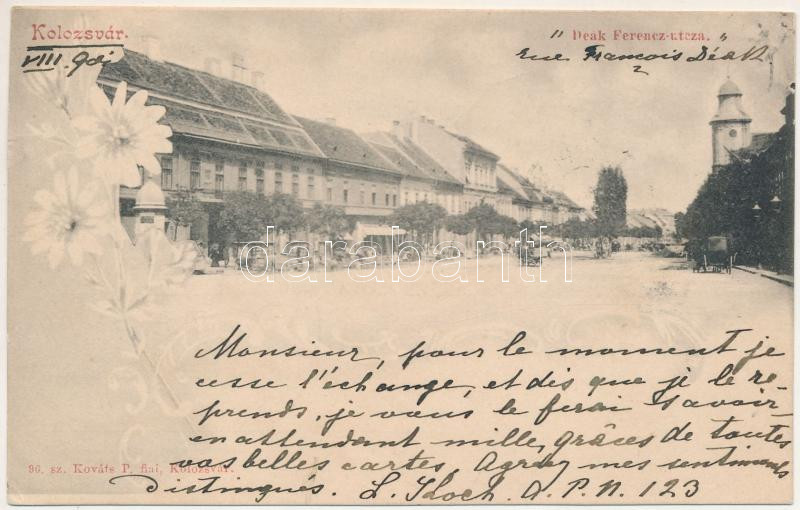 Kolozsvár.
" Deák Ferencz-utcza. "
Rue François Deák
darabanth.com
Monsieur, pour le moment je
cesse l'échange, et dès que je le re-
prends, je vous le ferai savoir
en attendant mille grâces de toutes
vos belles cartes. Agréez mes sentiments
distingués. L. A. P. N. 123
96. sz. Kováts P. fiai, Kolozsvár.